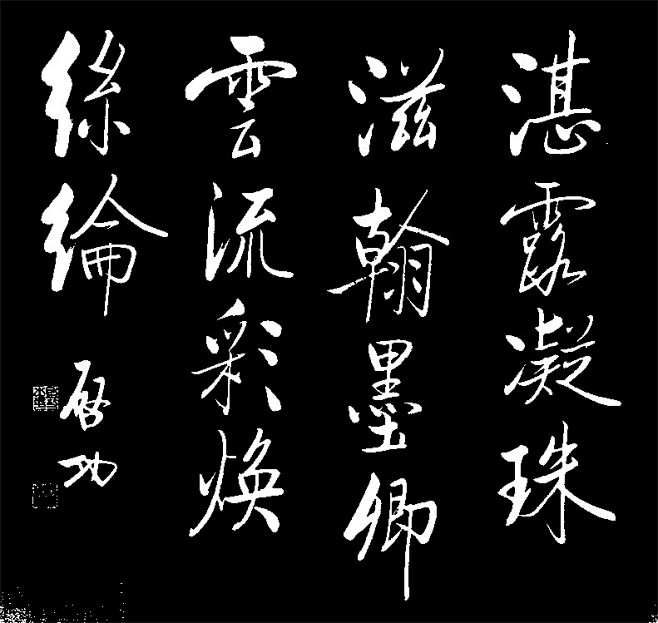 湛露凝珠
滋翰墨卿
雲流彩煥
絲綸
啟功